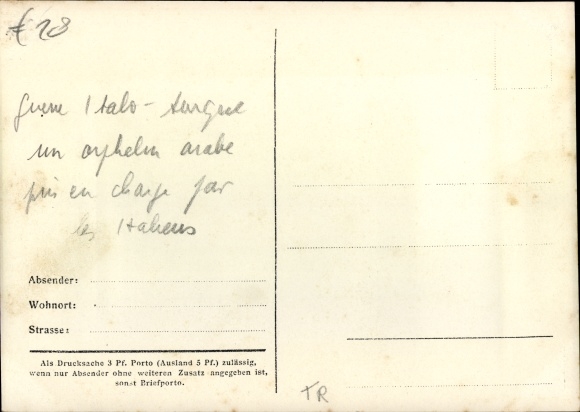 € 28
guerre Italo-turque
un orphelin arabe
pris en charge par
les Italiens
Absender:
Wohnort:
Strasse:
Als Drucksache 3 Pf. Porto (Ausland 5 Pf.) zulässig,
wenn nur Absender ohne weiteren Zusatz angegeben ist,
sonst Briefporto.
TR